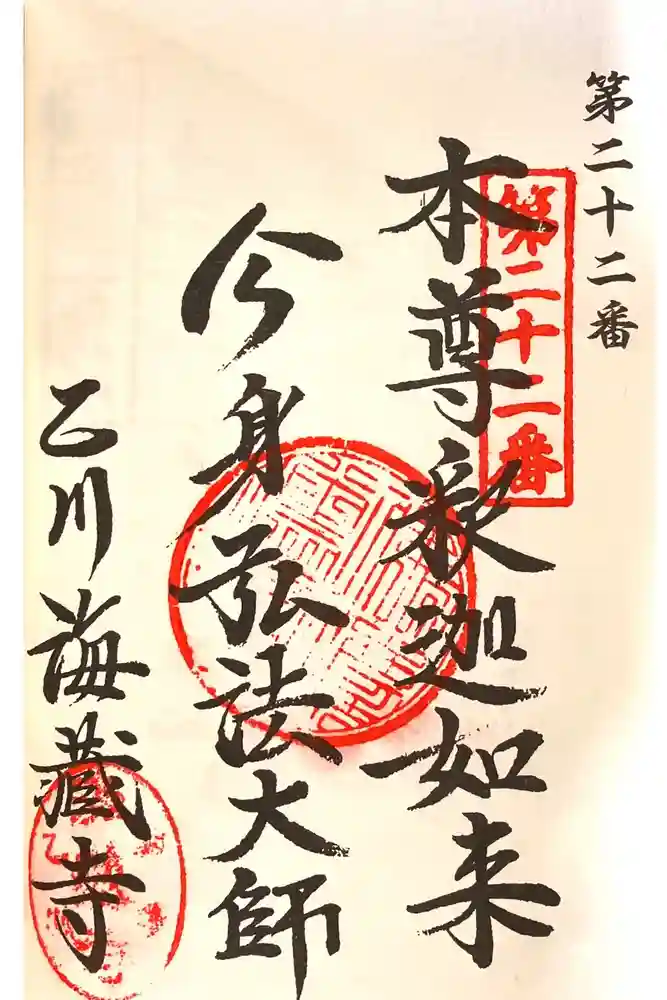 第二十二番
第二十二番
本尊釈迦如来
今身弘法大師
乙川海蔵寺